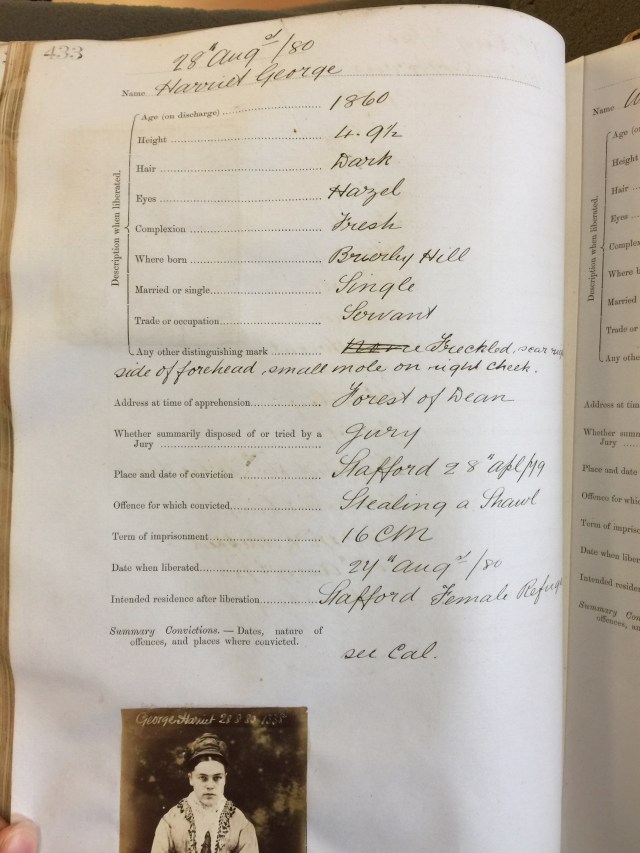 433
28th Augst/80
Name Harriet George
Description when liberated.
Age (on discharge) 1860
Height 4. 9½
Hair Dark
Eyes Hazel
Complexion Fresh
Where born Brierley Hill
Married or single Single
Trade or occupation Servant
Any other distinguishing mark None Freckled, scar
side of forehead, small mole on right cheek.
Address at time of apprehension Forest of Dean
Whether summarily disposed of or tried by a
Jury Jury
Place and date of conviction Stafford 28th Apl/79
Offence for which convicted Stealing a Shawl
Term of imprisonment 16 CM
Date when liberated 27th Augst/80
Intended residence after liberation Stafford Female Refuge
Summary Convictions. — Dates, nature of
offences, and places where convicted.
see Cal.
George Harriet 28 8 80
Name
Description when liberated.
Age (o
Height
Hair
Eyes
Complex
Where b
Married
Trade or
Any othe
Address at tim
Whether summ
Jury
Place and date
Offence for whic
Term of impriso
Date when libera
Intended residen
Summary Con
offences, an